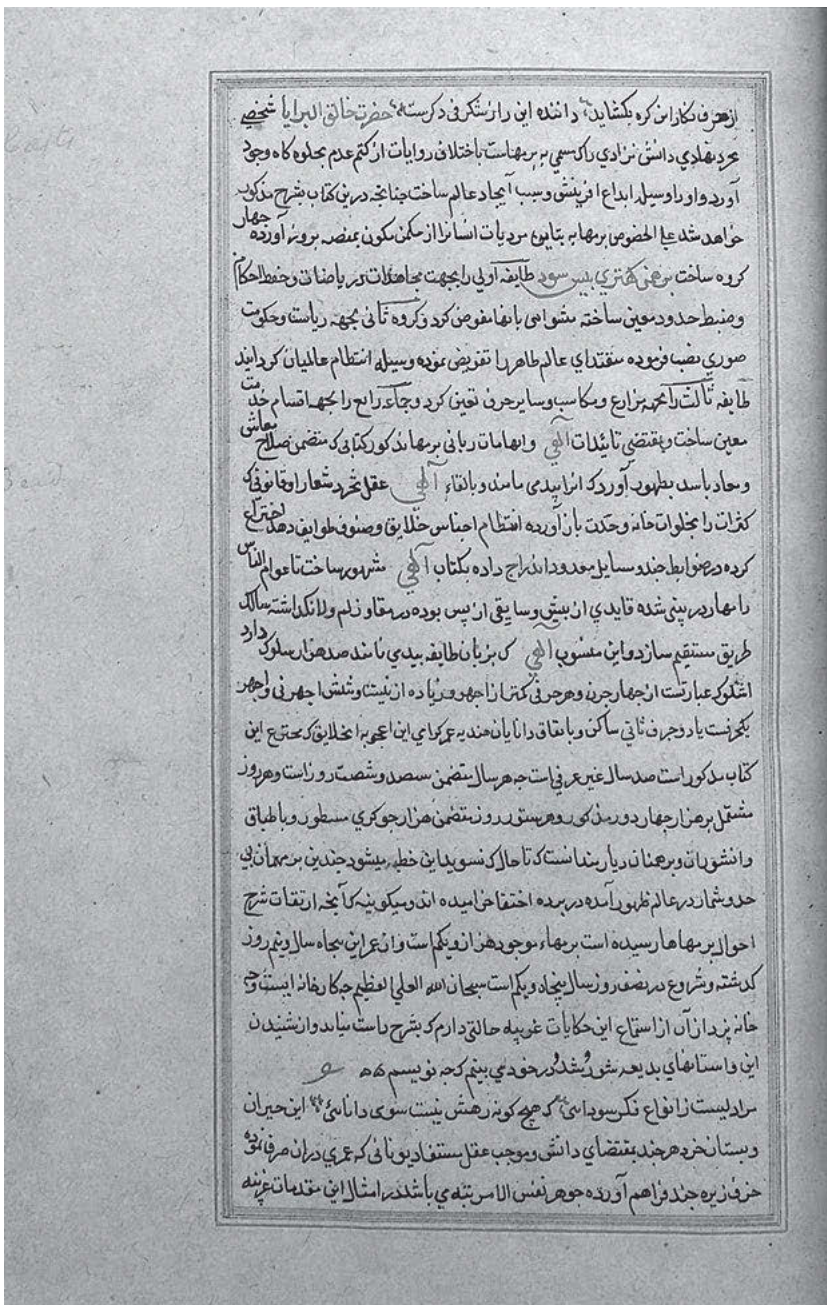 داننده این راز شگرفی دکرست حضرت خالق البرایا شخصی
مجرد نهادی دانش نژادی را که مسمی به برمهاست باختلاف روایات از کتم عدم بجلوه کاه وجود
آورد و او را وسیله ابداع افرینش و سبب آیجاد عالم ساخت چنانچه درین کتاب بشرح مذکور
خواهد شد علی الخصوص برمها آورده چهار
کروه ساخت برهمن کهتری بیس سودر طایفه آولی را بجهت مجاهدات و ریاضات و حفظ احکام
و ضبط حدود معین ساخته پیشوایی بانها مفوض کرد و کروه ثانی بجهه ریاست و حکومت
صوری نصب فرموده مقتدای عالم ظاهر را تفویض نموده وسیله انتظام عالمیان کردانید
طایفه ثالث را بجهه مزارع و مکاسب و سایر حرف تعین کرد و جماعه رابع را بجهه اقسام خدمت
معین ساخت و بمقتضی تایدات آلهی و الهامات ربانی برمها مذکور کتابی که متضمن صلاح معاش
و معاد باشد بظهور آورد که انرا بید می نامند و بالقاء آلهی عقل تجرد شعار او قانونی که
کثرات را بخلوات خانه وحدت باز آورده انتظام اجناس خلایق و صنوف طوایف دهد اختراع
کرده در ضوابط چند و مسایل معدود اندراج داده بکتاب آلهی مشهور ساخت تا عوام الناس
را مهار در بینی شده قایدی از پیش و سایقی از پس بوده در مفاوز لم ولا نکداشته سالک
طریق مستقیم سازد و این منسوب آلهی که بزبان طایفه بیدی نامند صد هزار سلوک دارد
اشلوک عبارتست از چهار چرن و هر چرنی کمتر از اچهر و زیاده از بیست و شش اچهر نی و اچهر
یکحرفست یا دو حرف ثانی ساکن و باتفاق دانایان هند عمر کرامی این اعجوبه الخلایق که مخترع این
کتاب مذکور است صد سال غیر عرفی است چه هر سال متضمن سیصد و شصت روز است و هر روز
مشتمل بر هزار چهار دور مذکور و هر روز متضمن هزار چوکری مسطور و باطباق
دانشوران و برهمنان دیار هند است که تا حال که تسوید این خطبه میشود چندین برمهای بی
حد و شمار در عالم ظهور آمده در پرده اختفا خرامیده اند و میکویند که آنچه از ثقات شرح
احوال برمها ها رسیده است برمهاء موجود هزار و یکم است و از عمر این پنجاه سال و نیم روز
کذشته و شروع در نصف روز سال پنجاه و یکم است سبحان الله العلی العظیم چه کارخانه ایست و چه
خانه پردازان از استماع این حکایات غریبه حالتی دارم که بشرح راست نیاید و از شنیدن
این داستانهای بدیعه شور در خود می بینم که چه نویسم
مرا دلیست ز انواع فکر سودایی که هیچ کونه رهش نیست سوی دانایی این حیران
دبستان خرد هر چند بمقتضای دانش و موجب عقل مستفاد یونانی که عمری دران صرف نموده
خزف ریزه چند فراهم آورده جوهر نفس الامر امثال این مقدمات غریبه